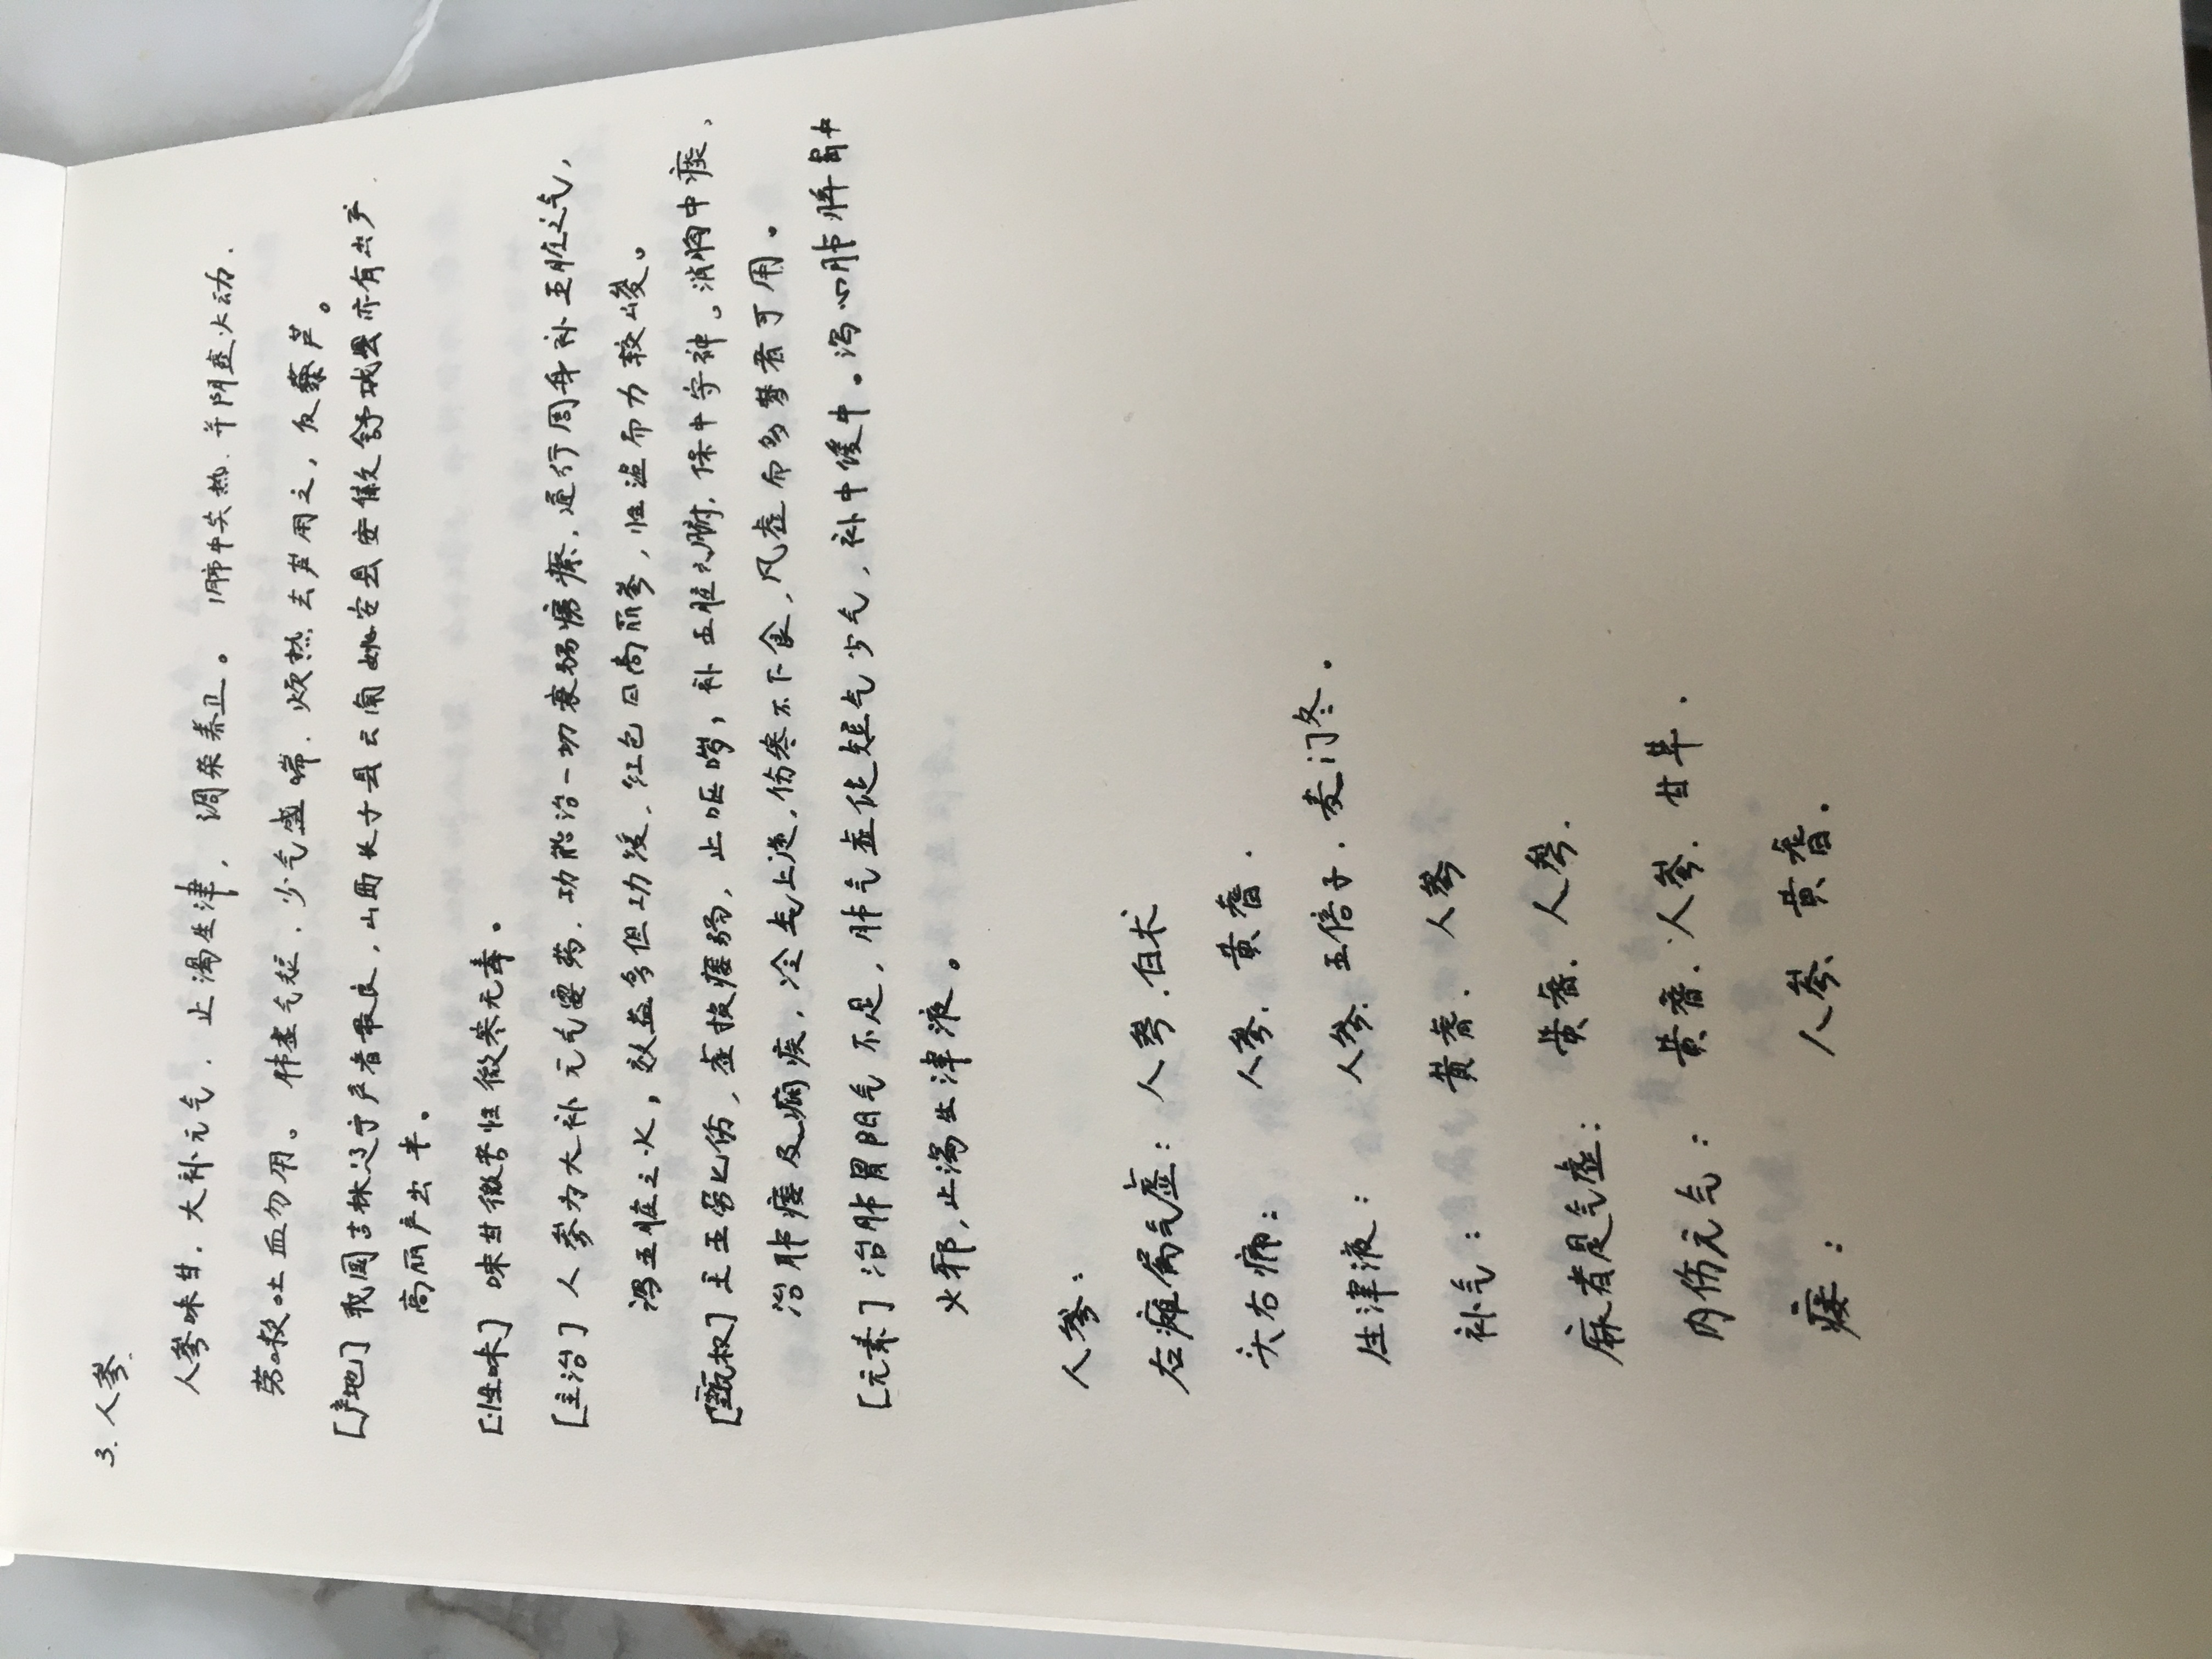 3.人參.
人參味甘.大补元气.止渴生津,调荣养卫。肺中实热.并阴虚火动.
劳嗽吐血勿用。肺虚气短.少气虚喘.煨热去芦用之,反藜芦。
[产地]我国吉林辽宁产者最良,山西长子县云南姚安县安徽舒城县亦有出产
高丽产出半。
[性味]味甘微苦性微寒无毒。
[主治]人參为大补元气要药.功能治一切衰弱痨瘵.通行周身补五脏之气,
泻五脏之火,效益多但功缓.红色曰高丽參,性温而力较峻。
[甄权]主五劳七伤,虚损痿弱,止呕哕,补五脏六腑.保中守神。消胸中痰.
治肺痿及痫疾,冷气上逆,伤寒不下食,凡虚而多梦者可用。
[元素]治肺胃阳气不足,肺气虚促短气少气,补中缓中。泻心肺脾胃中
火邪,止渴生津液。
人參:
右瘫属气虚:人參.白术
头右痛:人參.黄耆.
生津液:人參.五倍子.麦门冬.
补气:黄耆.人參
麻者是气虚:黄耆.人參.
内伤元气:黄耆.人參.甘草.
痿:人參.黄耆.